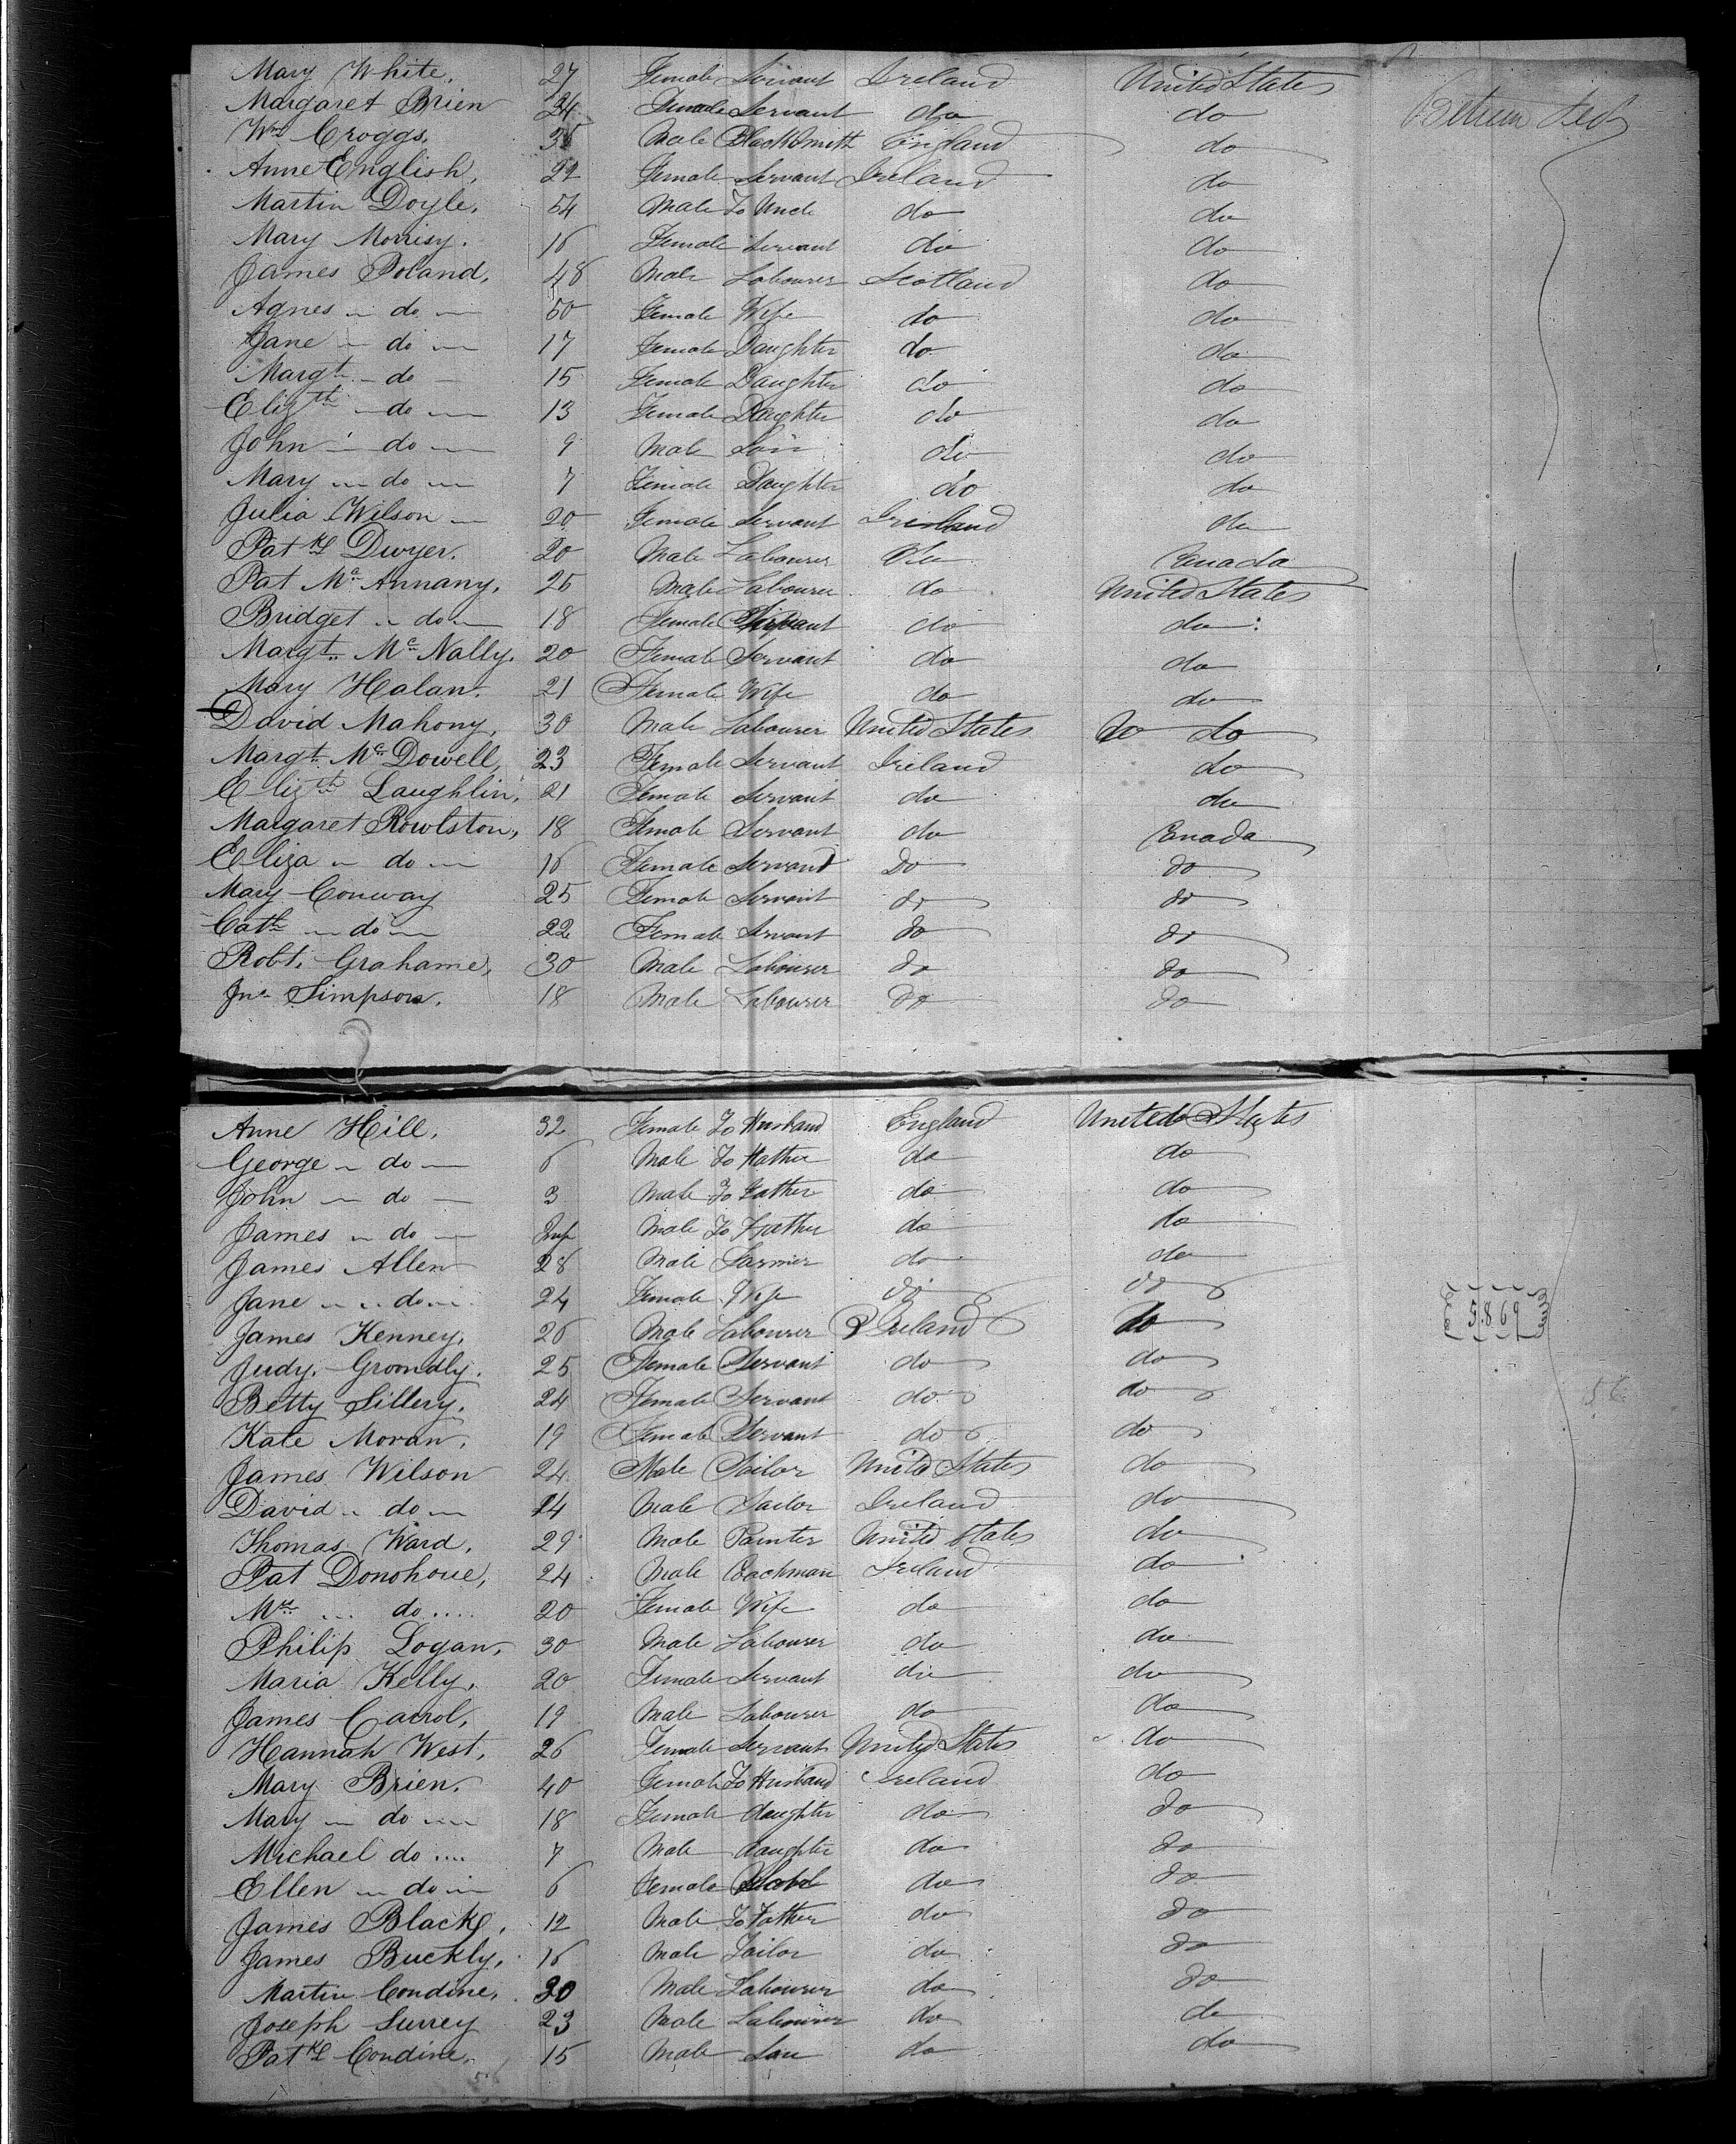 Mary White, 27 Female Servant Ireland United States
Margaret Brien 24 Female Servant do do
Wm Croggs, 35 Male Blacksmith England do
Anne English, 22 Female Servant Ireland do
Martin Doyle, 54 Male To Uncle do do
Mary Morrisy. 16 Female Servant do do
James Poland, 48 Male Labourer Scotland do
Agnes " do " 50 Female Wife do do
Jane " do " 17 Female Daughter do do
Margt " do " 15 Female Daughter do do
Elizth " do " 13 Female Daughter do do
John " do " 9 Male Son do do
Mary " do " 7 Female Daughter do do
Julia Wilson 20 Female Servant Ireland do
Patk Dwyer. 20 Male Labourer do Canada
Pat Mc Annany, 25 Male Labourer do United States
Bridget " do " 18 Female Servant do do
Margt. Mc Nally. 20 Female Servant do do
Mary Halan. 21 Female Wife do do
David Mahony, 30 Male Labourer United States do do
Margt. Mc Dowell, 23 Female Servant Ireland do
Elizth Laughlin, 21 Female Servant do do
Margaret Rowlston, 18 Female Servant do Canada
Eliza " do " 16 Female Servant do do
Mary Conway 25 Female Servant do do
Cath " do " 22 Female Servant do do
Robt. Grahame, 30 Male Labourer do do
Jno Simpson. 18 Male Labourer do do
Anne Hill, 32 Female To Husband England United States
George " do " 6 Male To Father do do
John " do " 3 Male To Father do do
James " do " Inf Male To Father do do
James Allen 28 Male Farmer do do
Jane " do " 24 Female Wife do do
James Kenney, 26 Male Labourer Ireland do
5.869
Judy. Groondly. 25 Female Servant do do
Betty Sillery. 24 Female Servant do do
Kate Moran, 19 Female Servant do do
James Wilson 24 Male Sailor United States do
David " do " 14 Male Sailor Ireland do
Thomas Ward, 29 Male Painter United States do
Pat Donohoue, 24 Male Coachman Ireland do
Mrs " do " 20 Female Wife do do
Philip Logan, 30 Male Labourer do do
Maria Kelly, 20 Female Servant do do
James Carrol, 19 Male Labourer do do
Hannah West, 26 Female Servant United States do
Mary Brien, 40 Female To Husband Ireland do
Mary " do " 18 Female daughter do do
Michael do " 7 Male daughter do do
Ellen " do " 6 Female do do
James Blacke, 12 Male To Father do do
James Buckly, 16 Male Tailor do do
Martin Condine, 30 Male Labourer do do
Joseph Surrey 23 Male Labourer do do
Patk Condine, 15 Male do do